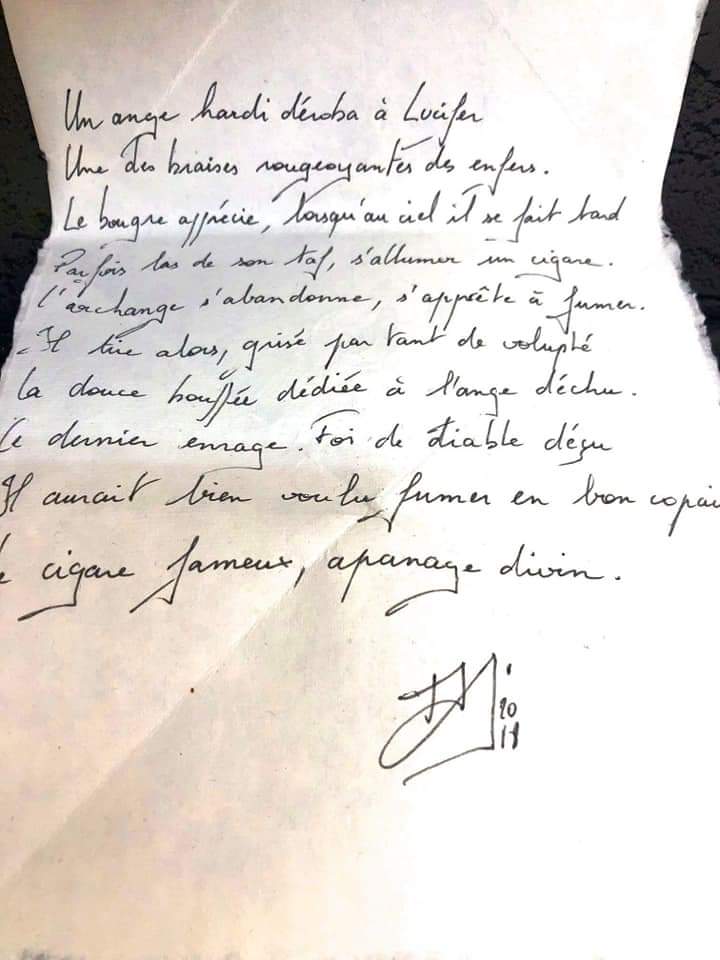 Un ange hardi déroba à Lucifer
Une des braises rougeoyantes des enfers.
Le bougre apprécie, lorsqu'au ciel il se fait tard
Parfois las de son taf, s'allumer un cigare.
L'archange s'abandonne, s'apprête à fumer.
Il tire alors, grisé par tant de volupté
La douce bouffée dédiée à l'ange déchu.
Ce dernier enrage. Foi de diable déçu
Il aurait bien voulu fumer en bon copain
Le cigare fameux, apanage divin.
20